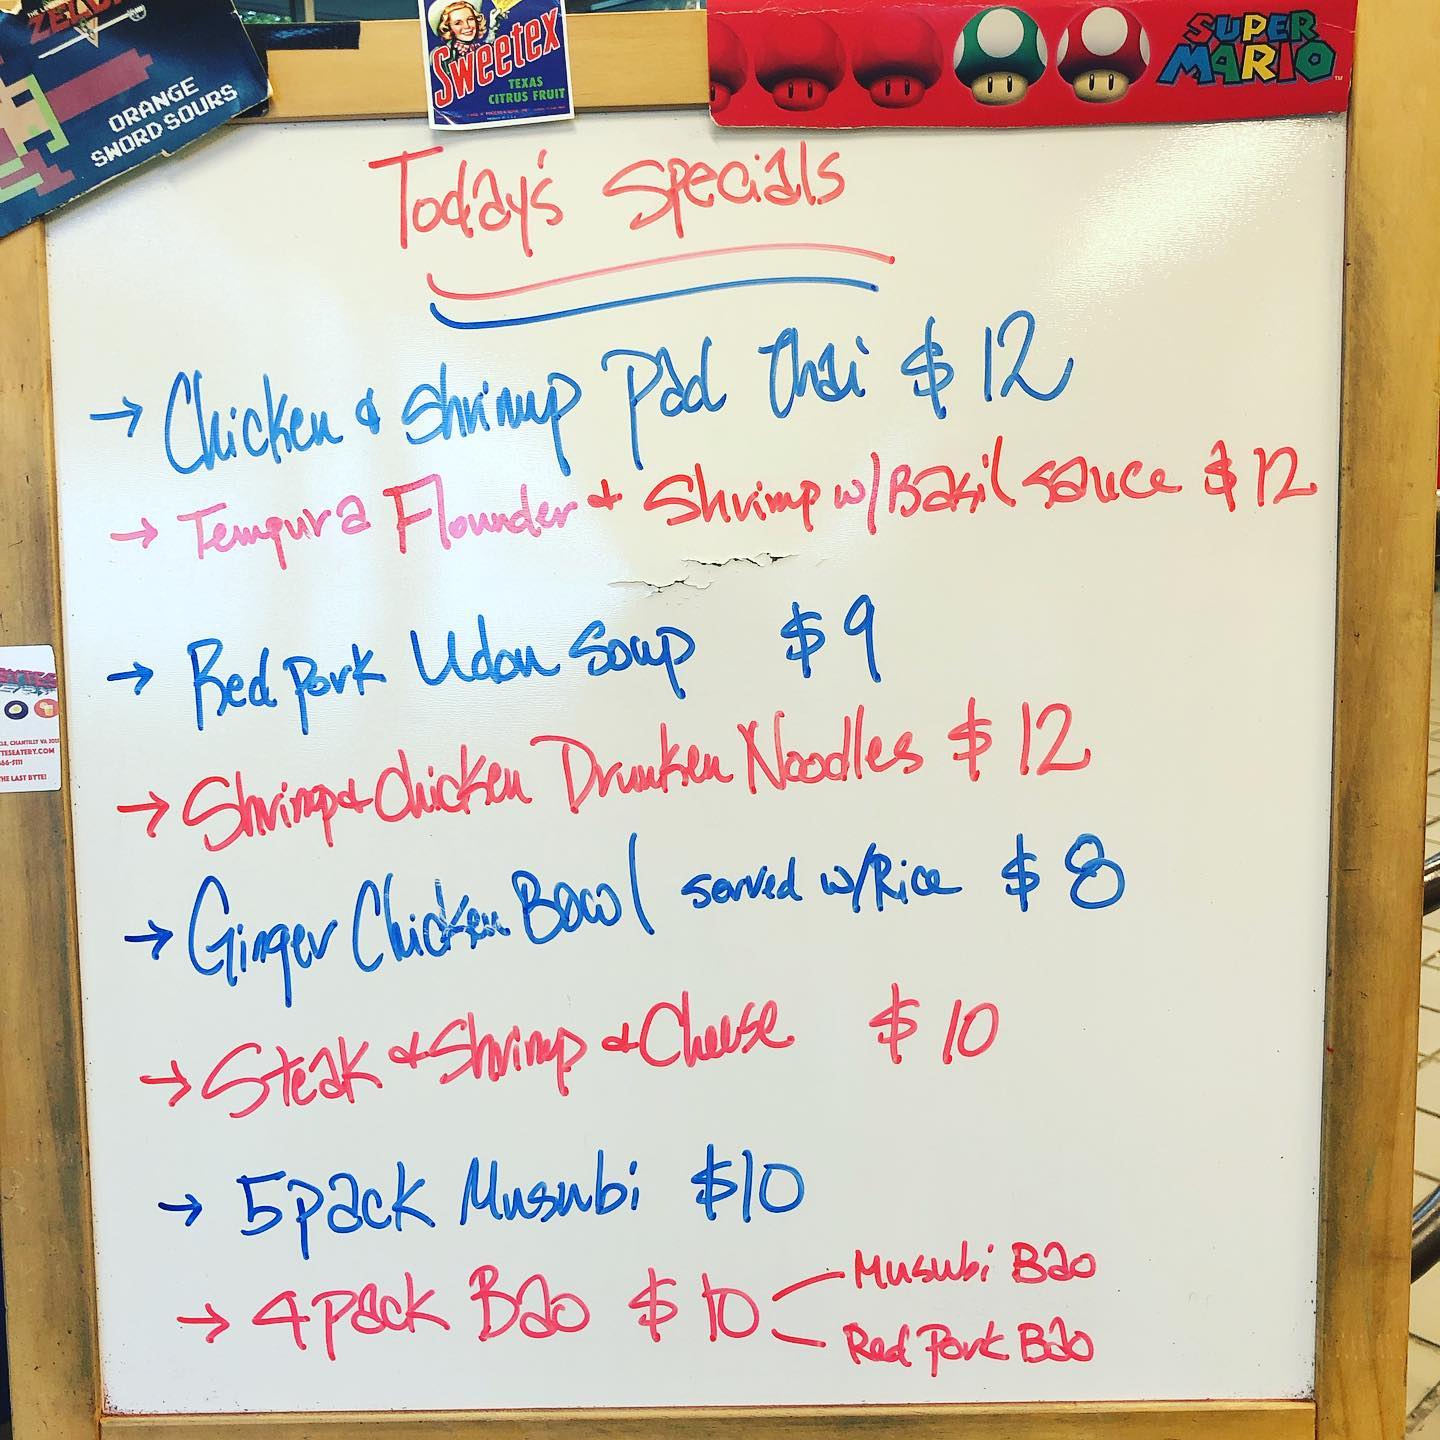 ZELDA
ORANGE
SWORD SOURS
Sweetex
TEXAS
CITRUS FRUIT
SUPER
MARIO
Today's Specials
→ Chicken & Shrimp Pad Thai $12
→ Tempura Flounder & Shrimp w/Basil Sauce $12
→ Red Pork Udon Soup $9
→ Shrimp & Chicken Drunken Noodles $12
→ Ginger Chicken Bowl served w/Rice $8
→ Steak & Shrimp & Cheese $10
→ 5pack Musubi $10
→ 4pack Bao $10
Musubi Bao
Red Pork Bao
CHANTILLY VA
TESEATERY.COM
66-5111
HE LAST BYTE!